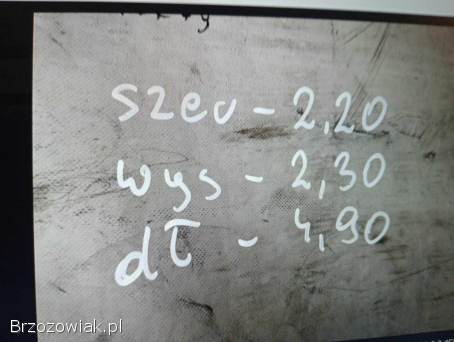 szeu - 2,20
wys - 2,30
dł - 4,90
Brzozowiak.pl